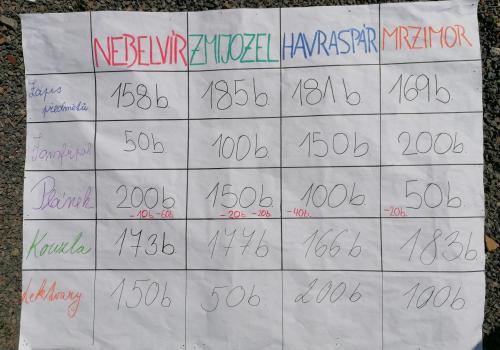 NEBELVÍR ZMIJOZEL HAVRASPÁR MRZIMOR
Zápis
předmětů 158b 185b. 181b 169b.
50b. 100b. 150b 200b
Plánek 200b 150b 100b 50b
-10b -60b -20b -20b -40b. -20b.
Kouzla 173b 177b 166b 183b
Lektvary 150b 50b 200b 100b